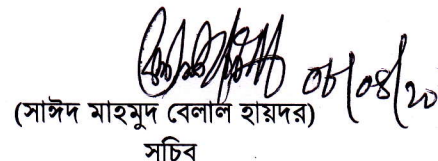 ০৮/০৪/২০
(সাঈদ মাহমুদ বেলাল হায়দর)
সচিব